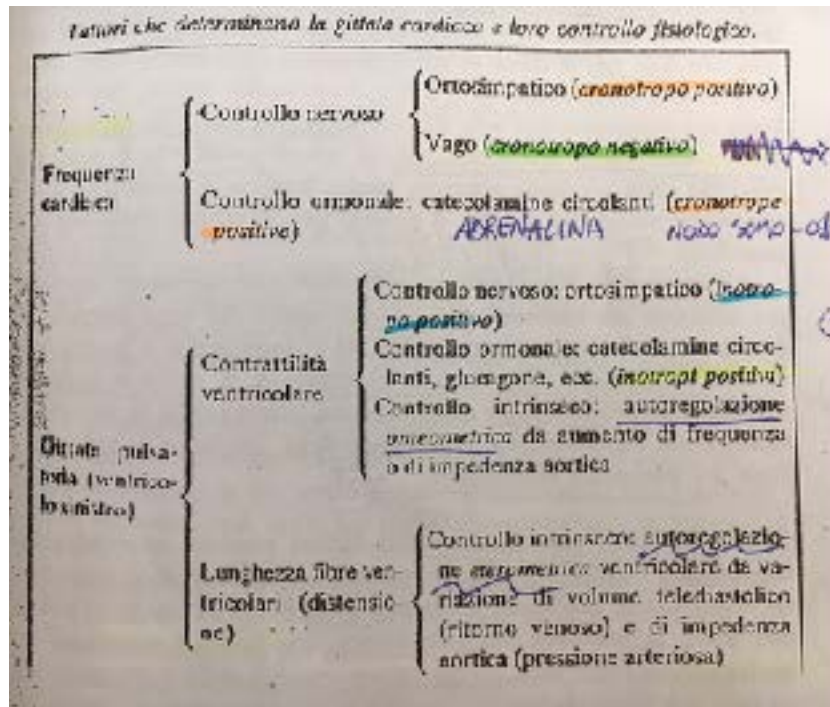 Fattori che determinano la gittata cardiaca e loro controllo fisiologico.
Frequenza
cardiaca
Controllo nervoso
Ortosimpatico (cronotropo positivo)
Vago (cronotropo negativo)
Controllo ormonale: catecolamine circolanti (cronotrope
positive)
ADRENALINA NODO
Gittata pulsa-
toria (ventrico-
lo sinistro)
Contrattilità
ventricolare
Controllo nervoso: ortosimpatico (inotro-
po positivo)
Controllo ormonale: catecolamine circo-
lanti, glucagone, ecc. (inotropi positivi)
Controllo intrinseco: autoregolazione
omeometrica da aumento di frequenza
o di impedenza aortica
Lunghezza fibre ven-
tricolari (distensio-
ne)
Controllo intrinseco: autoregolazio-
ne eterometrica ventricolare da va-
riazione di volume telediastolico
(ritorno venoso) e di impedenza
aortica (pressione arteriosa)